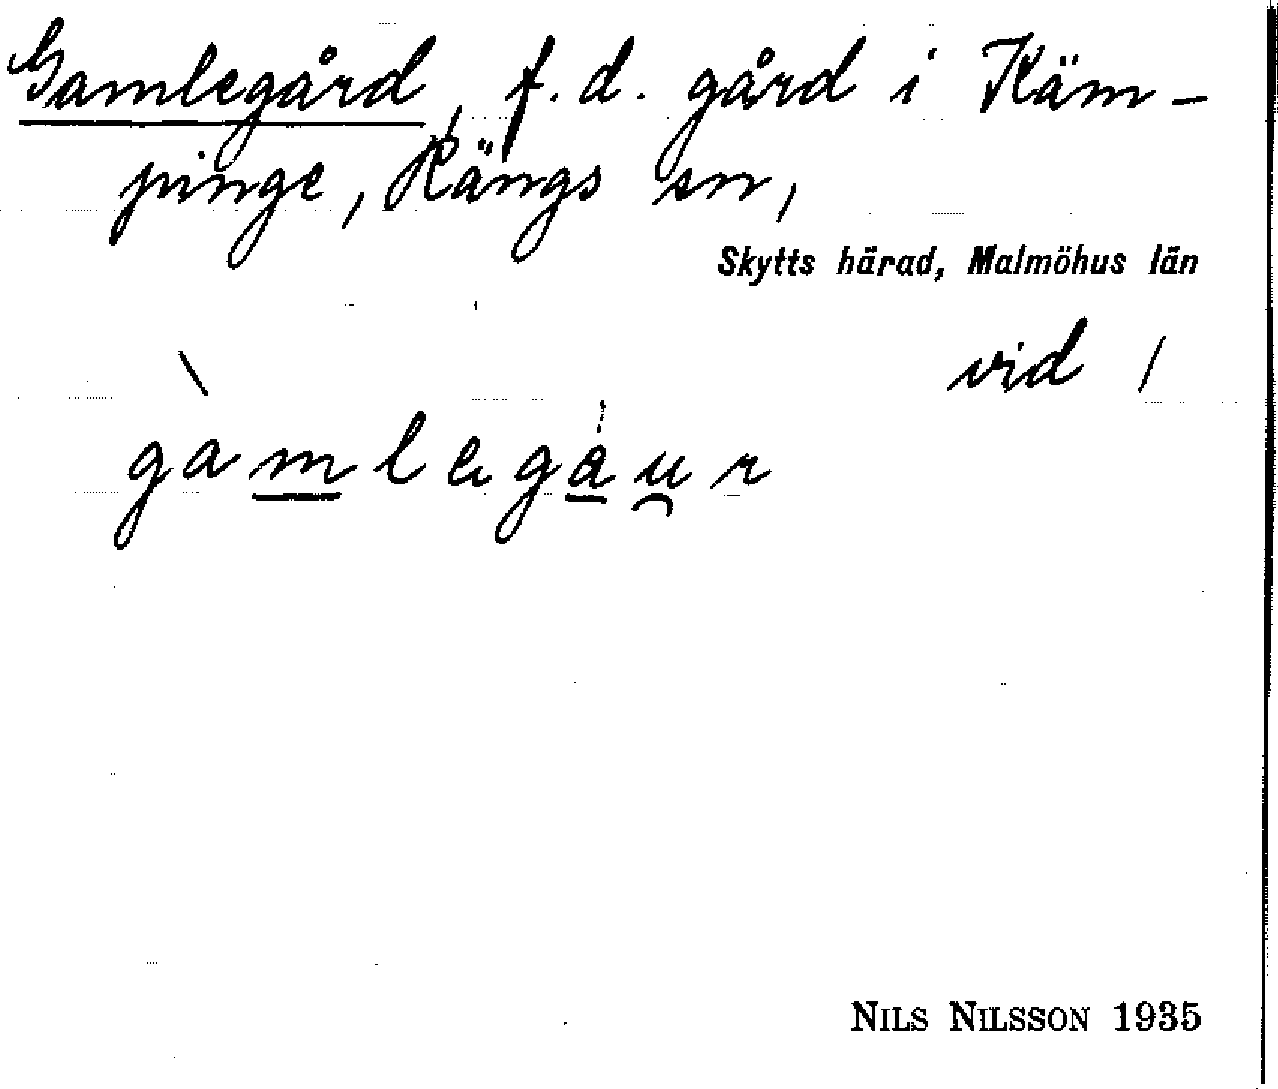 Gamlegård, f.d. gård i Käm-
pinge, Rängs sn,
Skytts härad, Malmöhus län
vid /
gamlegaur
NILS NILSSON 1935